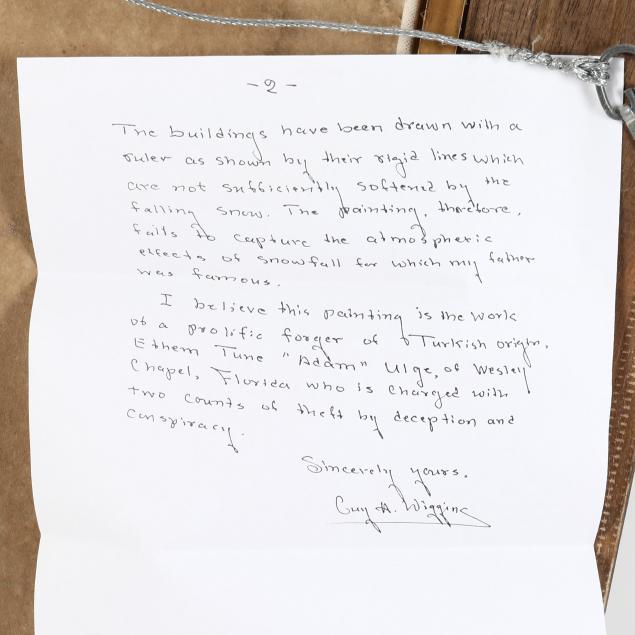 -2-
The buildings have been drawn with a
ruler as shown by their rigid lines which
are not sufficiently softened by the
falling snow. The painting, therefore,
fails to capture the atmospheric
effects of snowfall for which my father
was famous.
I believe this painting is the work
of a prolific forger of Turkish origin,
Ethem Tunc "Adam" Ulge, of Wesley
Chapel, Florida who is charged with
two counts of theft by deception and
conspiracy.
Sincerely yours,
Guy A. Wiggins